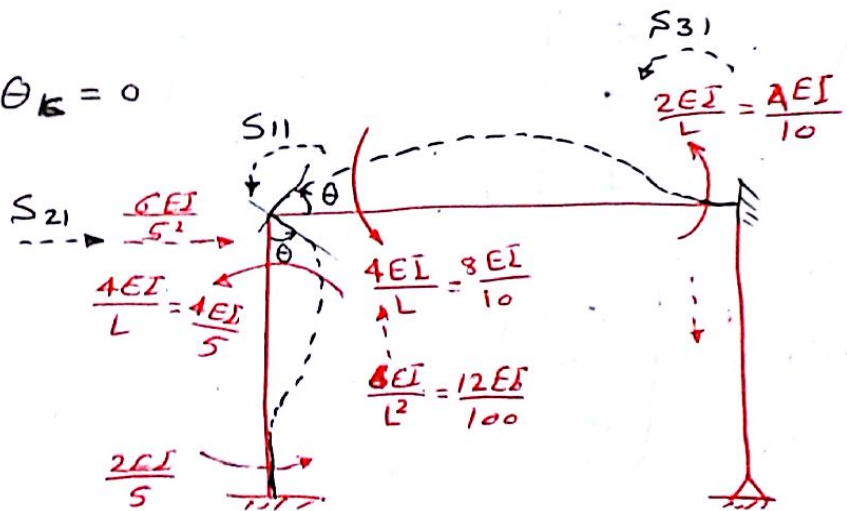 S31
2EI/L = 4EI/10
S11
θ
S21
6EI/5²
θ
4EI/L = 4EI/5
4EI/L = 8EI/10
6EI/L² = 12EI/100
2EI/5